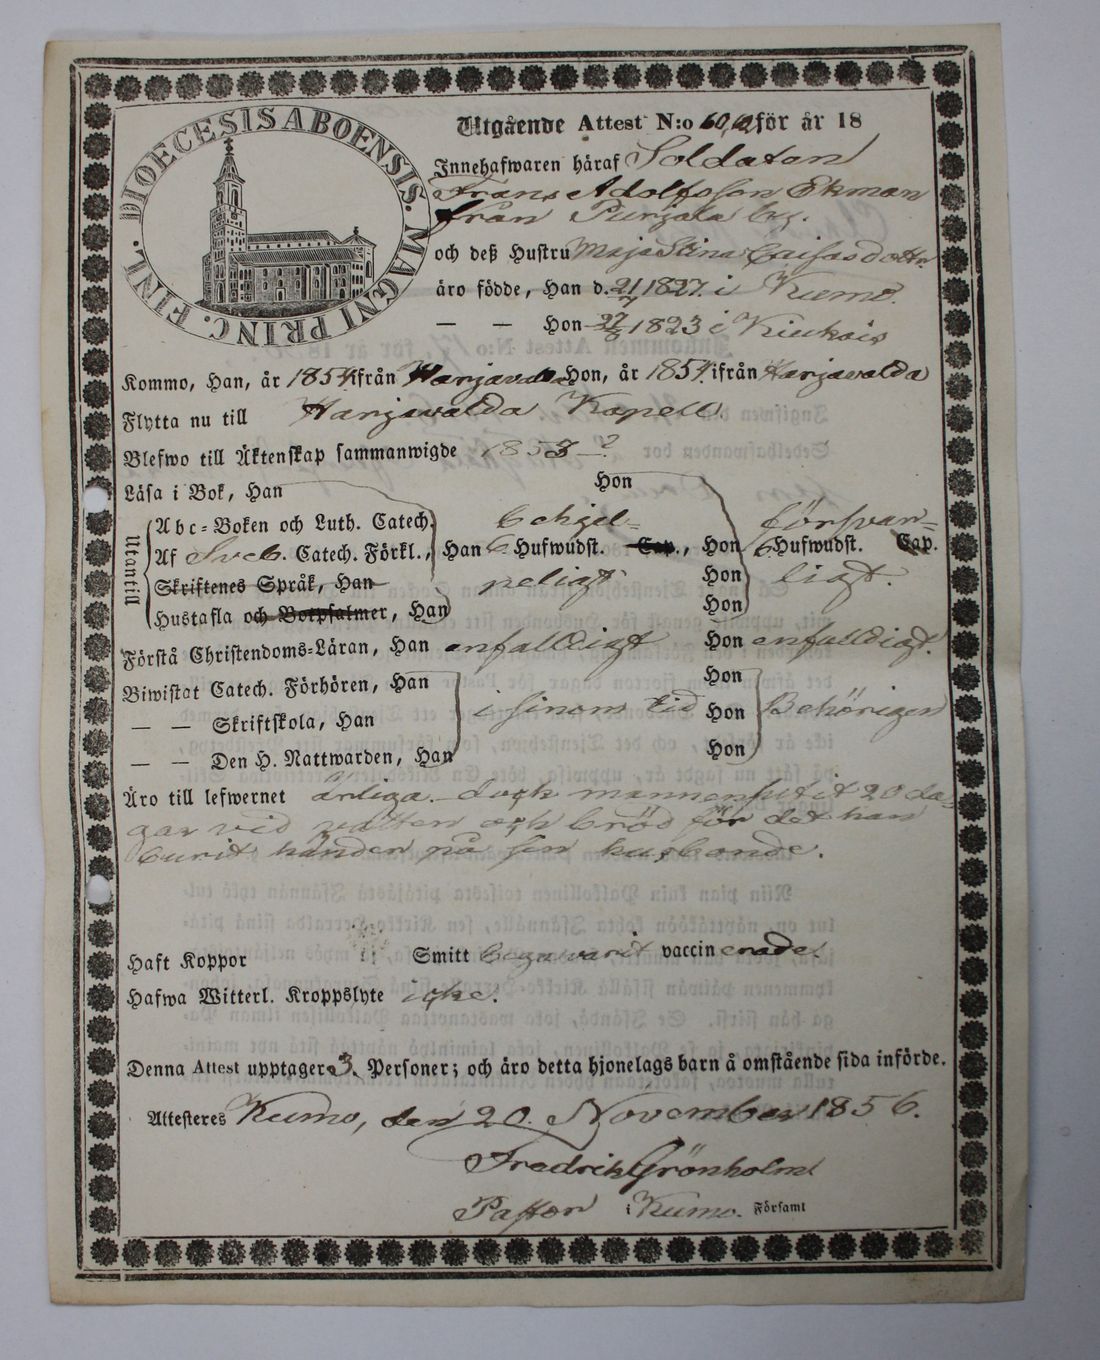 DIOECESIS ABOENSIS. MAGNI PRINC. FINL.
Utgående Attest N:o 60, för år 18
Innehafwaren häraf Soldaten
Frans Adolfsson Ekman
från Purjala by.
och deß Hustru Maja Stina Caisasdotter
äro födde, Han d. 21/ 1827. i Kumo.
— — Hon 27/ 1823 i Kiukais
Kommo, Han, år 1854 ifrån Harjavalda Hon, år 1854. ifrån Harjavalda
Flytta nu till Harjavalda Kapell.
Blefwo till Äktenskap sammanwigde 1853 - ?
Läsa i Bok, Han Hon
Utantill
Abc-Boken och Luth. Catech. behjel= försvar=
Af Sveb. Catech. Förkl., Han 6 Hufwudst. Cap., Hon 6 Hufwudst. Cap.
Skriftenes Språk, Han peligt Hon ligt.
Hustafla och Botpsalmer, Han Hon
Förstå Christendoms-Läran, Han enfalldigt Hon enfalldigt.
Biwistat Catech. Förhören, Han Hon
— — Skriftskola, Han i sinom tid Hon Behörigen
— — Den H. Nattwarden, Han Hon
Äro till lefwernet ärliga. - dock mannen sutit 20 da=
gar vid vatten och bröd för det han
burit händer på sin husbonde.
Haft Koppor Smitt bega varit vaccinerade.
Hafwa Witterl. Kroppslyte icke.
Denna Attest upptager 3. Personer; och äro detta hjonelags barn å omstående sida införde.
Attesteres Kumo, den 20. November 1856.
Fredrik Grönholm
Pastor i Kumo. Församl